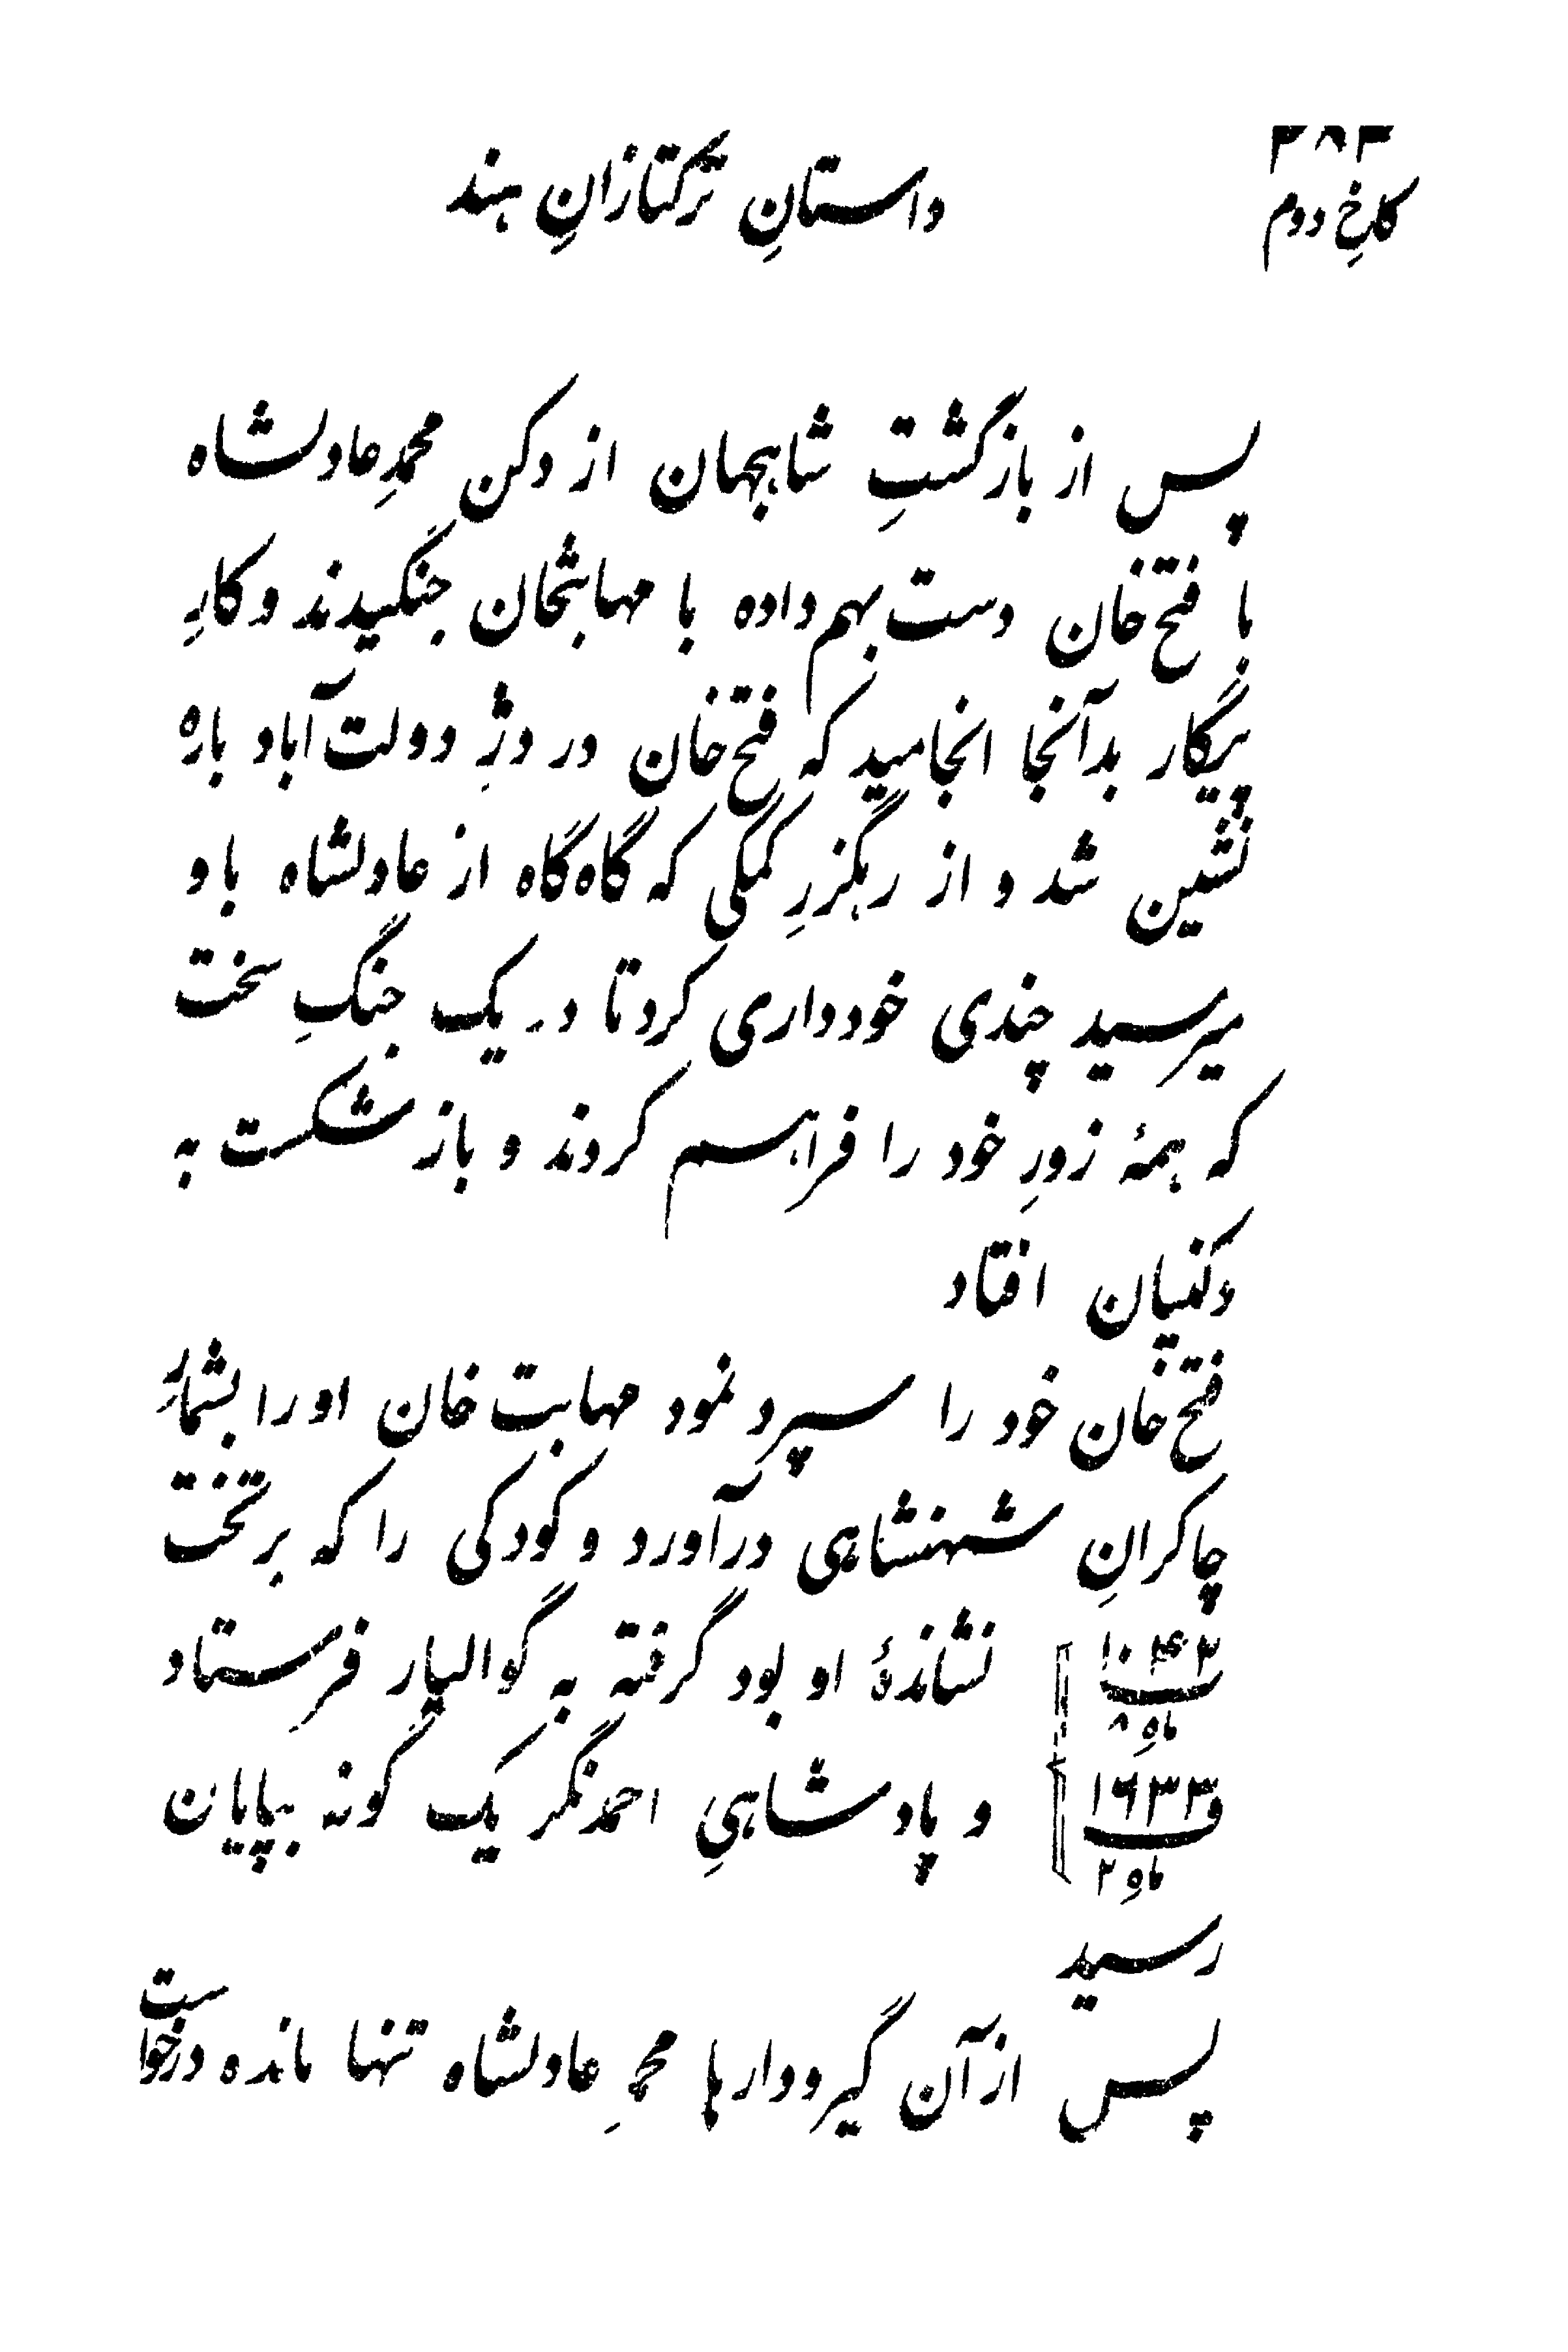 داستانِ ترکتازانِ هند
کاخِ دوم
پس از بازگشتِ شاهجهان از دکن محمدِ عادلشاه
با فتح خان دست بهم داده با مهابتخان جنگیدند و کارِ
پیکار بدآنجا انجامید که فتح خان در دژِ دولت آباد باره
نشین شد و از رهگزرِ کمکی که گاه گاه از عادلشاه باو
میرسید چندی خودداری کرد تا در یک جنگِ سخت
که همهٔ زورِ خود را فراهم کردند و باز شکست به
دکنیان افتاد
فتح خان خود را سپرد نمود مهابت خان او را بشمارِ
چاکرانِ شهنشاهی درآورد و کودکی را که بر تخت
نشاندهٔ او بود گرفته به گوالیار فرستاد
۱۰۴۲
ماهِ ۸
و پادشاهیِ احمدنگر یک گونه بپایان
۱۶۳۳
ماهِ ۲
رسید
پس از آن گیرودارها محمدِ عادلشاه تنها مانده درخواست